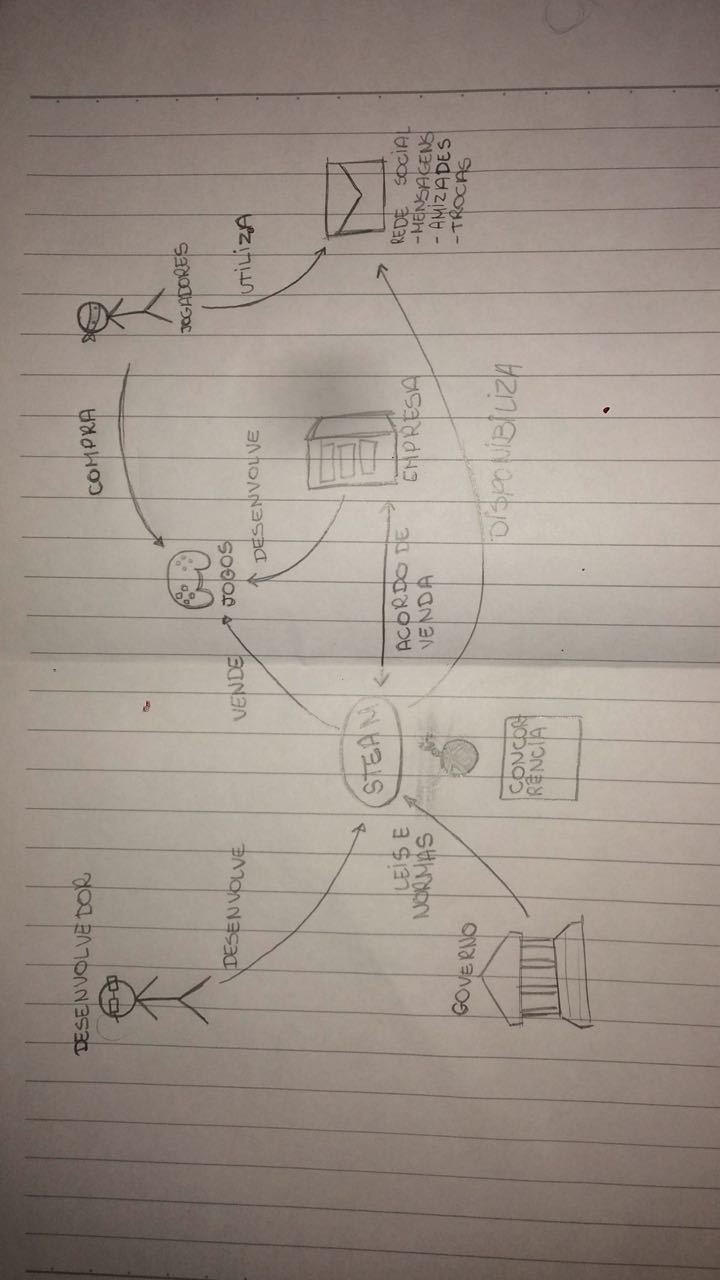 DESENVOLVEDOR
COMPRA
JOGADORES
DESENVOLVE
VENDE
JOGOS
DESENVOLVE
UTILIZA
STEAM
LEIS E
NORMAS
ACORDO DE
VENDA
EMPRESA
REDE SOCIAL
-MENSAGENS
-AMIZADES
-TROCAS
GOVERNO
DISPONIBILIZA
CONCOR
RÊNCIA